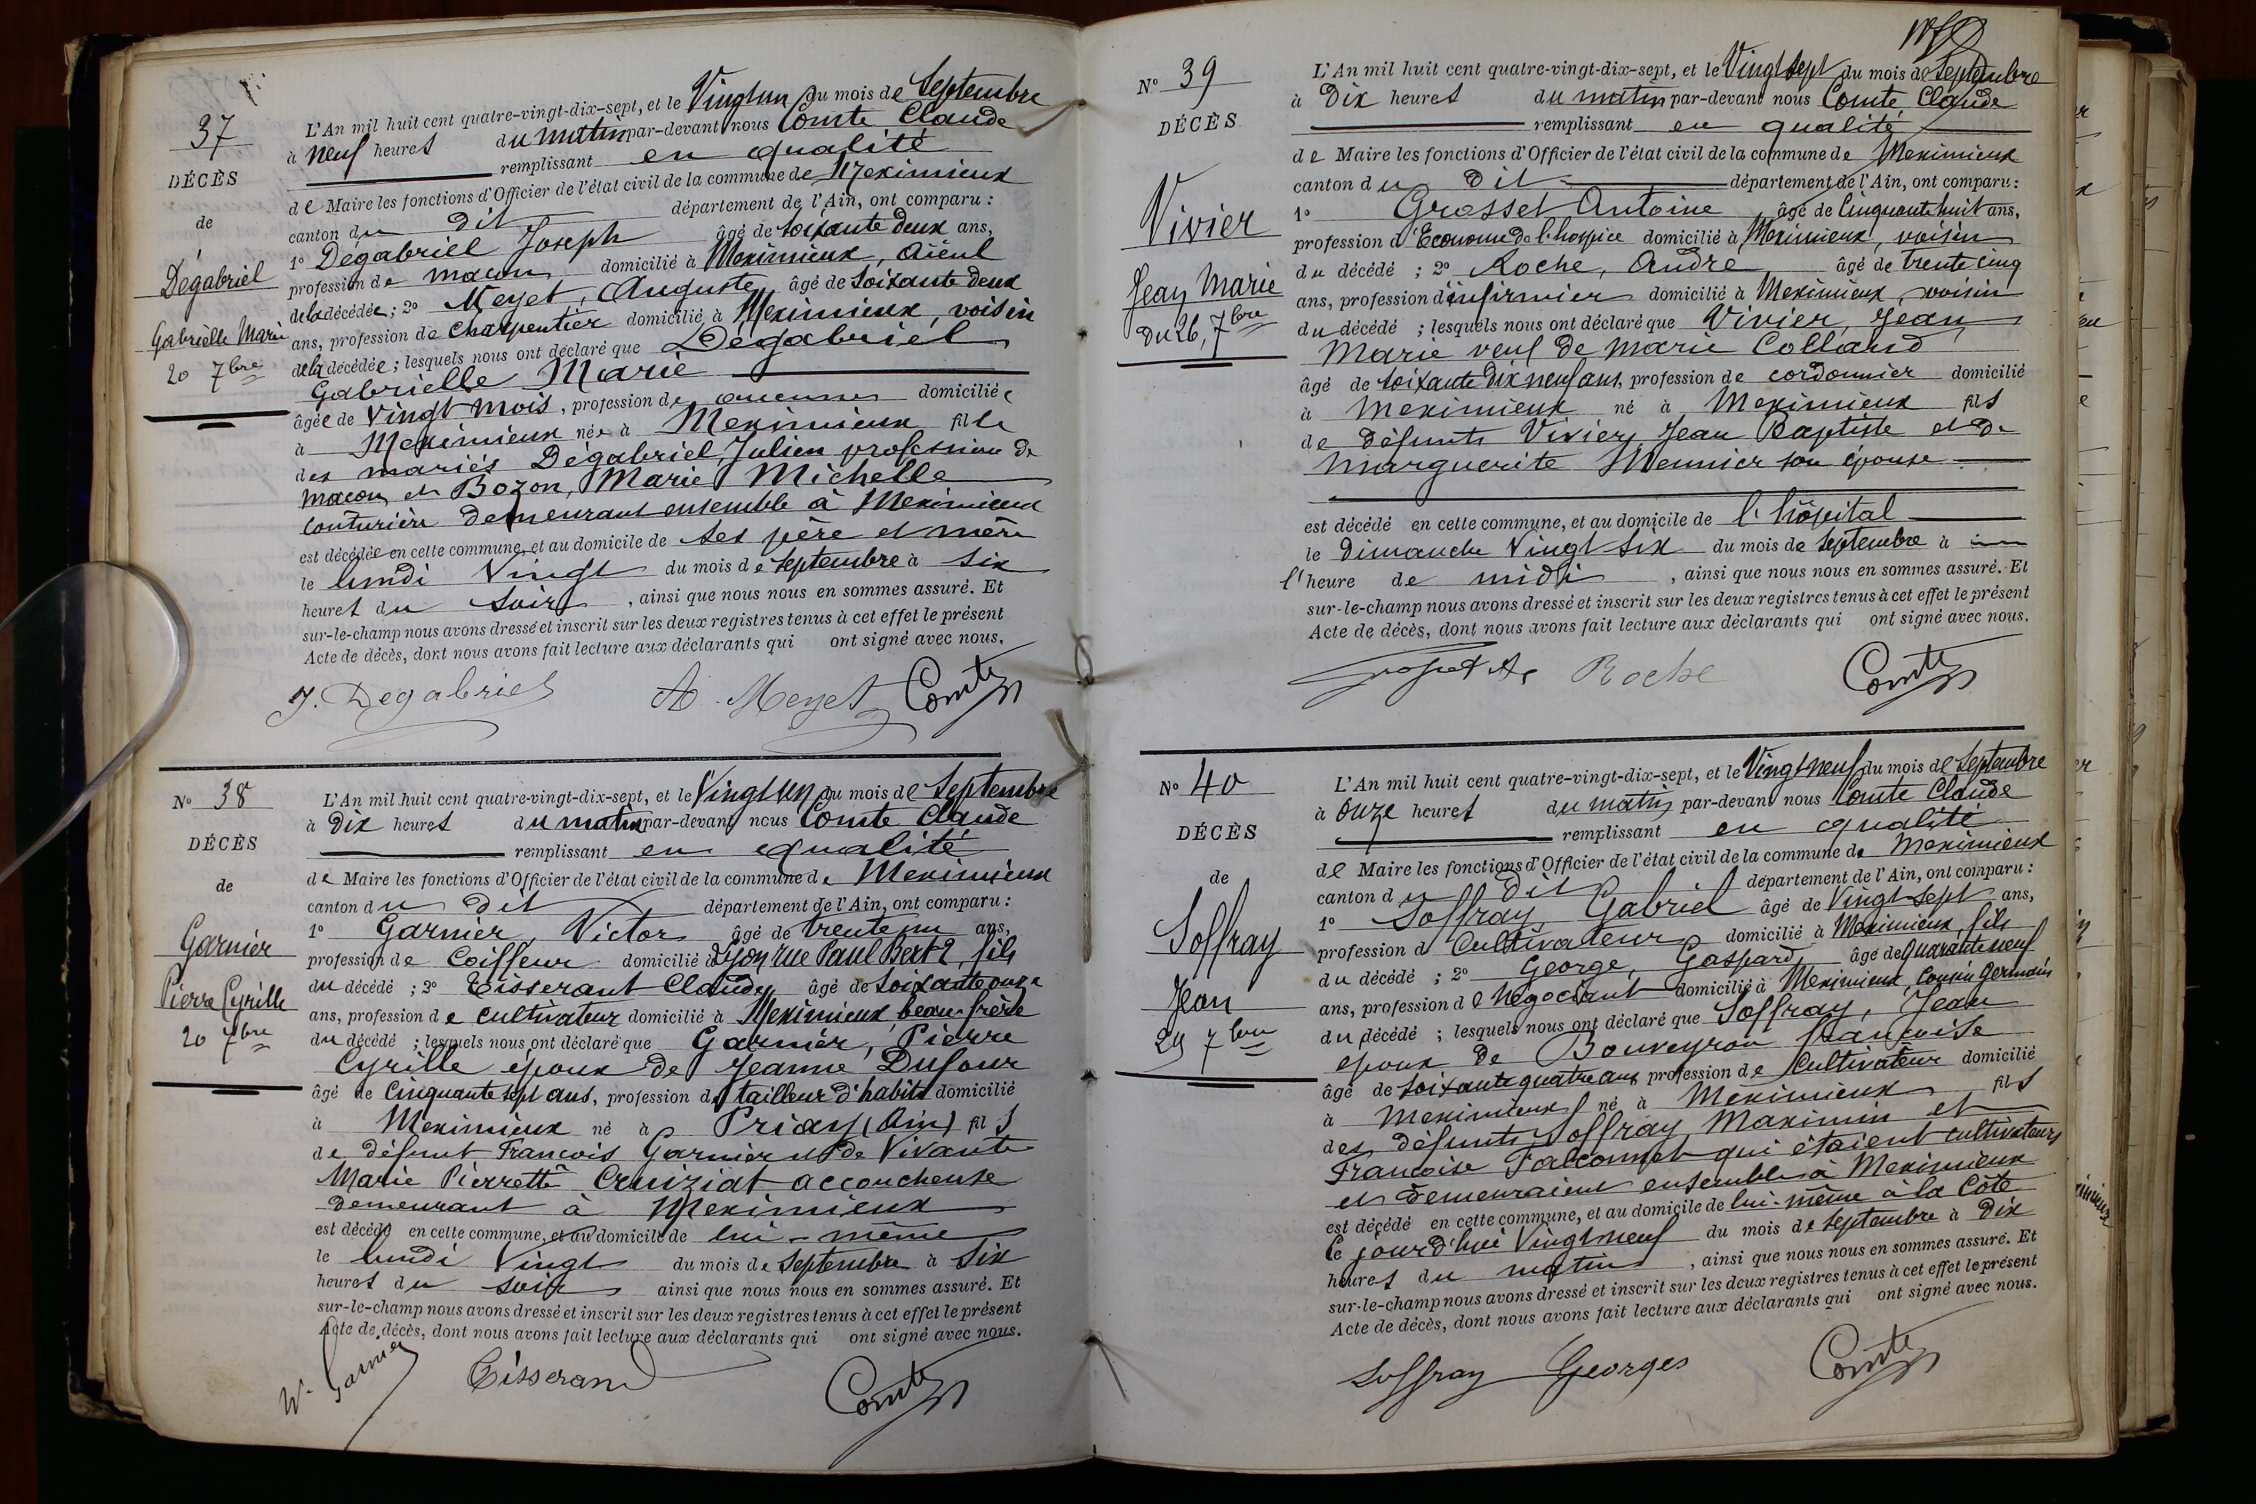 37
DÉCÈS
de
Dégabriel
Gabrielle Marie
20 7bre
L'An mil huit cent quatre-vingt-dix-sept, et le Vingt un du mois de Septembre
à neuf heures du matin par-devant nous Comte Claude
remplissant en qualité
de Maire les fonctions d'Officier de l'état civil de la commune de Meximieux
canton du dit département de l'Ain, ont comparu :
1º Dégabriel Joseph âgé de soixante deux ans,
profession de maçon domicilié à Meximieux, aïeul
de la décédée ; 2º Meyet, Auguste âgé de soixante deux
ans, profession de charpentier domicilié à Meximieux, voisin
de la décédée ; lesquels nous ont déclaré que Dégabriel
Gabrielle Marie
âgée de vingt mois, profession de aucune domiciliée
à Meximieux née à Meximieux fille
des mariés Dégabriel, Julien profession de
maçon et Bozon, Marie Michelle
couturière demeurant ensemble à Meximieux
est décédée en cette commune, et au domicile de ses père et mère
le lundi Vingt du mois de septembre à six
heures du soir, ainsi que nous nous en sommes assuré. Et
sur-le-champ nous avons dressé et inscrit sur les deux registres tenus à cet effet le présent
Acte de décès, dont nous avons fait lecture aux déclarants qui ont signé avec nous.
J. Degabriel A Meyet Comte
Nº 38
DÉCÈS
de
Garnier
Pierre Cyrille
20 7bre
L'An mil huit cent quatre-vingt-dix-sept, et le Vingt un du mois de Septembre
à Dix heures du matin par-devant nous Comte Claude
remplissant en qualité
de Maire les fonctions d'Officier de l'état civil de la commune de Meximieux
canton du dit département de l'Ain, ont comparu :
1º Garnier, Victor âgé de trente un ans,
profession de Coiffeur domicilié à Lyon rue Paul Bert 2, fils
du décédé ; 2º Tisserant Claude âgé de soixante onze
ans, profession de cultivateur domicilié à Meximieux, beau-frère
du décédé ; lesquels nous ont déclaré que Garnier, Pierre
Cyrille époux de Jeanne Dufour
âgé de Cinquante sept ans, profession de tailleur d'habits domicilié
à Meximieux né à Priay (Ain) fils
de défunt François Garnier et de Vivante
Marie Pierrette Cruiziat accoucheuse
demeurant à Meximieux
est décédé en cette commune, et au domicile de lui-même
le lundi Vingt du mois de septembre à six
heures du soir ainsi que nous nous en sommes assuré. Et
sur-le-champ nous avons dressé et inscrit sur les deux registres tenus à cet effet le présent
Acte de décès, dont nous avons fait lecture aux déclarants qui ont signé avec nous.
Vr Garnier Tisserand Comte
Nº 39
DÉCÈS
Vivier
Jean Marie
Du 26, 7bre
L'An mil huit cent quatre-vingt-dix-sept, et le Vingt sept du mois de Septembre
à Dix heures du matin par-devant nous Comte Claude
remplissant en qualité
de Maire les fonctions d'Officier de l'état civil de la commune de Meximieux
canton du dit département de l'Ain, ont comparu :
1º Grosset Antoine âgé de Cinquante huit ans,
profession d'Econome de l'hospice domicilié à Meximieux, voisin
du décédé ; 2º Roche, André âgé de trente cinq
ans, profession d'infirmier domicilié à Meximieux, voisin
du décédé ; lesquels nous ont déclaré que Vivier, Jean
Marie veuf de Marie Colland
âgé de soixante dix neuf ans, profession de cordonnier domicilié
à Meximieux né à Meximieux fils
de défunts Vivier, Jean Baptiste et de
Marguerite Meunier son épouse
est décédé en cette commune, et au domicile de l'hôpital
le Dimanche Vingt six du mois de septembre à
l'heure de midi, ainsi que nous nous en sommes assuré. Et
sur-le-champ nous avons dressé et inscrit sur les deux registres tenus à cet effet le présent
Acte de décès, dont nous avons fait lecture aux déclarants qui ont signé avec nous.
Grosset Roche Comte
Nº 40
DÉCÈS
de
Soffray
Jean
29 7bre
L'An mil huit cent quatre-vingt-dix-sept, et le Vingt neuf du mois de Septembre
à onze heures du matin par-devant nous Comte Claude
remplissant en qualité
de Maire les fonctions d'Officier de l'état civil de la commune de Meximieux
canton du dit département de l'Ain, ont comparu :
1º Soffray, Gabriel âgé de Vingt sept ans,
profession de Cultivateur domicilié à Meximieux, fils
du décédé ; 2º George, Gaspard, âgé de quarante neuf
ans, profession de Négociant domicilié à Meximieux, cousin germain
du décédé ; lesquels nous ont déclaré que Soffray, Jean
époux de Bouveyron françoise
âgé de soixante quatre ans profession de Cultivateur domicilié
à Meximieux né à Meximieux fils
des défunts Soffray Maximin et
Françoise Falconnet qui étaient cultivateurs
et demeuraient ensemble à Meximieux
est décédé en cette commune, et au domicile de lui-même à la Côte
le jourd'hui Vingt neuf du mois de septembre à Dix
heures du matin, ainsi que nous nous en sommes assuré. Et
sur-le-champ nous avons dressé et inscrit sur les deux registres tenus à cet effet le présent
Acte de décès, dont nous avons fait lecture aux déclarants qui ont signé avec nous.
Soffray Georges Comte